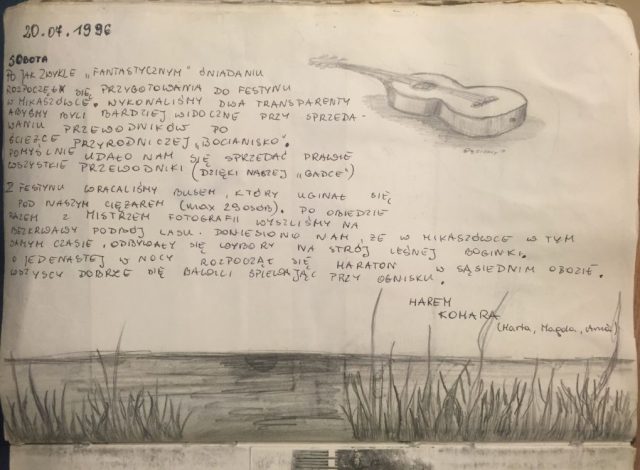 20.07.1996
SOBOTA
PO JAK ZWYKLE „FANTASTYCZNYM” ŚNIADANIU
ROZPOCZĘŁY SIĘ PRZYGOTOWANIA DO FESTYNU
W MIKASZÓWCE. WYKONALIŚMY DWA TRANSPARENTY
ABYŚMY BYLI BARDZIEJ WIDOCZNE PRZY SPRZEDA-
WANIU PRZEWODNIKÓW PO
ŚCIEŻCE PRZYRODNICZEJ „BOCIANISKO”.
POMYŚLNIE UDAŁO NAM SIĘ SPRZEDAĆ PRAWIE
WSZYSTKIE PRZEWODNIKI (DZIĘKI NASZEJ „GADCE”)
Z FESTYNU WRACALIŚMY BUSEM, KTÓRY UGINAŁ SIĘ
POD NASZYM CIĘŻAREM (MAX 29 OSÓB). PO OBIEDZIE
RAZEM Z MISTRZEM FOTOGRAFII WYSZLIŚMY NA
BEZKRWAWY PODBÓJ LASU. DONIESIONO NAM, ŻE W MIKASZÓWCE W TYM
SAMYM CZASIE, ODBYWAŁY SIĘ WYBORY NA STRÓJ LEŚNEJ BOGINKI.
O JEDENASTEJ W NOCY ROZPOCZĄŁ SIĘ MARATON W SĄSIEDNIM OBOZIE.
WSZYSCY DOBRZE SIĘ BAWILI ŚPIEWAJĄC PRZY OGNISKU.
HAREM
KOMARA
(Marta, Magda, Ania)